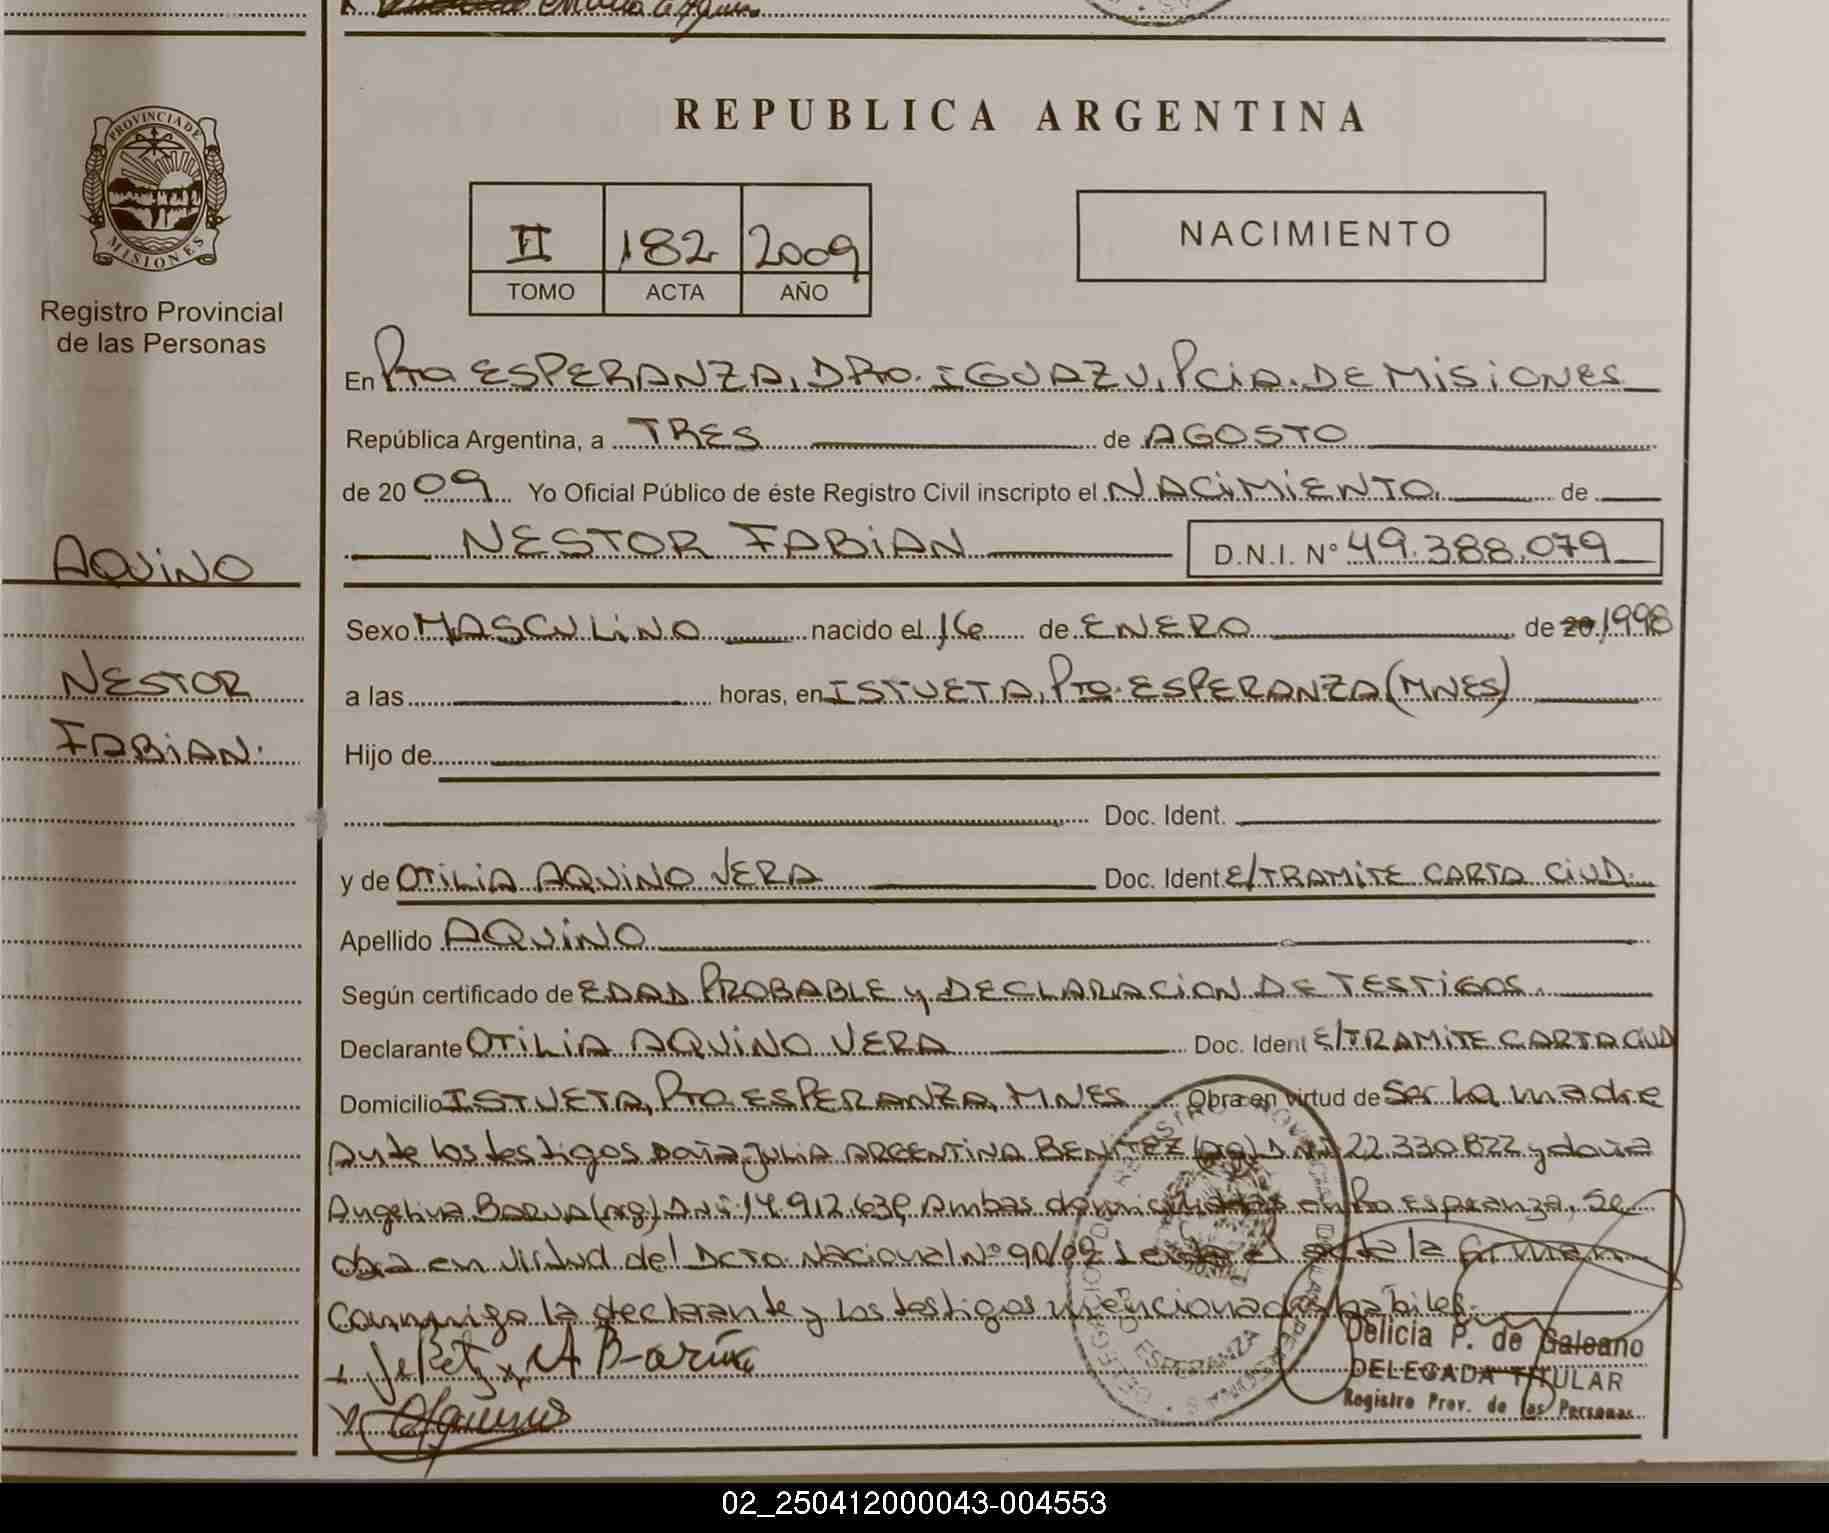 REPUBLICA ARGENTINA
PROVINCIA DE
MISIONES
Registro Provincial
de las Personas
II 182 2009
TOMO ACTA AÑO
NACIMIENTO
En Pto ESPERANZA, DPto. IGUAZU, PCiA. DE MISiONES
República Argentina, a TRES de AGOSTO
de 20 09 Yo Oficial Público de éste Registro Civil inscripto el NACiMiENTO de
NESTOR FABiAN D.N.I. N° 49.388.079
AQUiNO
NESTOR
FABiAN.
Sexo MASCULiNO nacido el 16 de ENERO de 20 1998
a las horas, en ISTUETA, Pto. ESPERANZA (MNES)
Hijo de
Doc. Ident.
y de OTiLiA AQUiNO VERA Doc. Ident E/TRAMiTE CARTA CiUD.
Apellido AQUiNO
Según certificado de EDAD PROBABLE y DECLARACiON DE TESTiGOS.
Declarante OTiLiA AQUiNO VERA Doc. Ident E/TRAMiTE CARTA CiUD
Domicilio ISTUETA, Pto ESPERANZA, MNES Obra en virtud de Ser la madre
Ante los testigos doña JULIA ARGENTINA BENITEZ (arg) DNI 22.330.822 y doña
Angelina BARUA (arg) Ambas domiciliadas en Pto Esperanza, Se
obra en virtud del Dcto. Nacional N° 90/09 Leida el acta la firman
conmigo la declarante y los testigos mencionados habiles.
A Barúa
Delicia P. de Galeano
DELEGADA TITULAR
Registro Prov. de las Personas
02_250412000043-004553